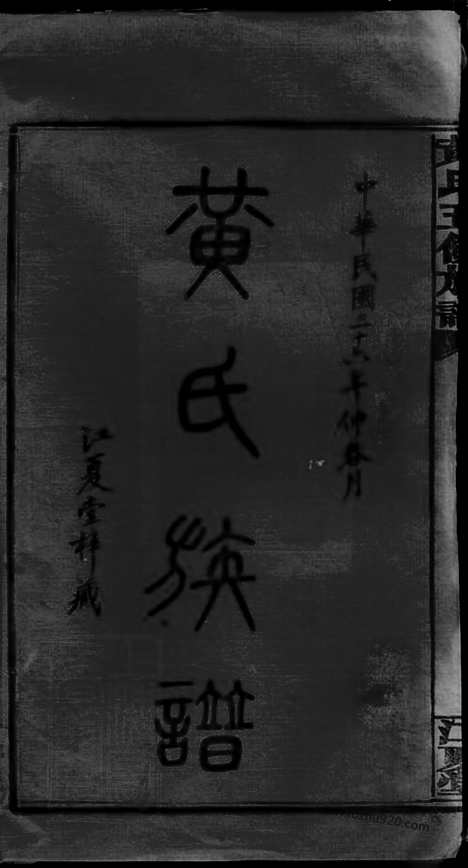 中華民國三十六年仲春月
黃氏族譜
江夏堂梓藏